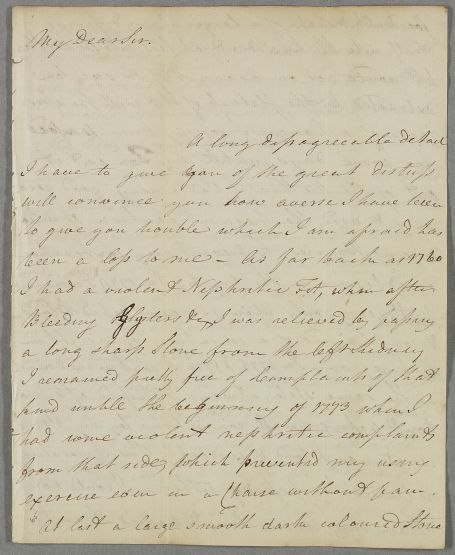 My Dear Sir.
A long dissagreeable detail
I have to give you of the great distress
will convince you how averse I have been
to give you trouble which I am afraid has
been a loss to me - As far back as 1760
I had a violent Nephritic Fit, when after
Bleeding Glysters &c, I was relieved by passing
a long sharp Stone from the left Kidney
I remained pretty free of Complaints of that
kind untill the beginning of 1773 when I
had some violent nephritic complaints
from that side, which prevented my using
exercise even in a Chaise without pain.
At last a large smooth dark coloured Stone